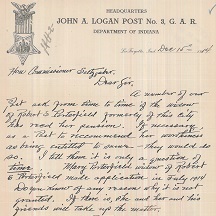 HEADQUARTERS
JOHN A. LOGAN POST No. 3, G. A. R.
DEPARTMENT OF INDIANA
La Fayette, Ind Dec 15th
Hon Commissioner
Dear Sir
A number of our
Post ask from time to time if the widow
of Robert S Porterfield formerly of this City
has now her pension. By
as a Post to recommend her worthiness
as being entitled to same they would do
so. I tell them it is only a question of
time. Mary Porterfield widow of Robert
S Porterfield made application in July 1914
Do you know of any reason why it is not
granted. If there is, she and her and his
friends will take up the matter.